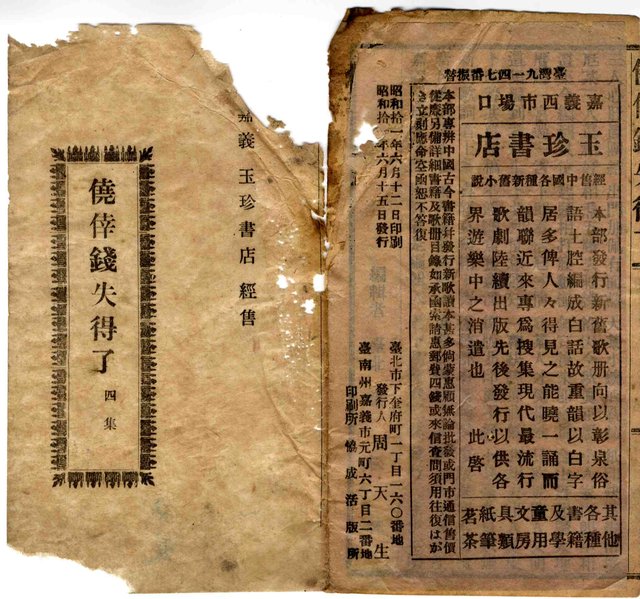 臺灣九一四七番振替
嘉義西市場口
玉珍書店
經售中國各種新舊小說
本部發行新舊歌册向以彰泉俗
語土腔編成白話故重韻以白字
居多俾人々得見之能曉一誦而
韻聯近來專為搜集現代最流行
歌劇陸續出版先後發行以供各
界遊樂中之消遣也 此啓
其他各種書籍及學童用文房具類紙筆茗茶
本部專辨中國古今書籍幷發行新歌讀本甚多倘蒙惠顧無論批發或門市通信售價
從廉另備詳細書籍及歌册目錄如承函索請惠郵費四錢或來信查問須用往復はが
き立刻應命空函恕不答復
昭和拾一年六月十二日印刷
昭和拾一年六月十五日發行
臺北市下奎府町一丁目一六〇番地
發行人 周天生
臺南州嘉義市元町六丁目二番地
印刷所 協成活版所
嘉義玉珍書店 經售
僥倖錢失得了 四集